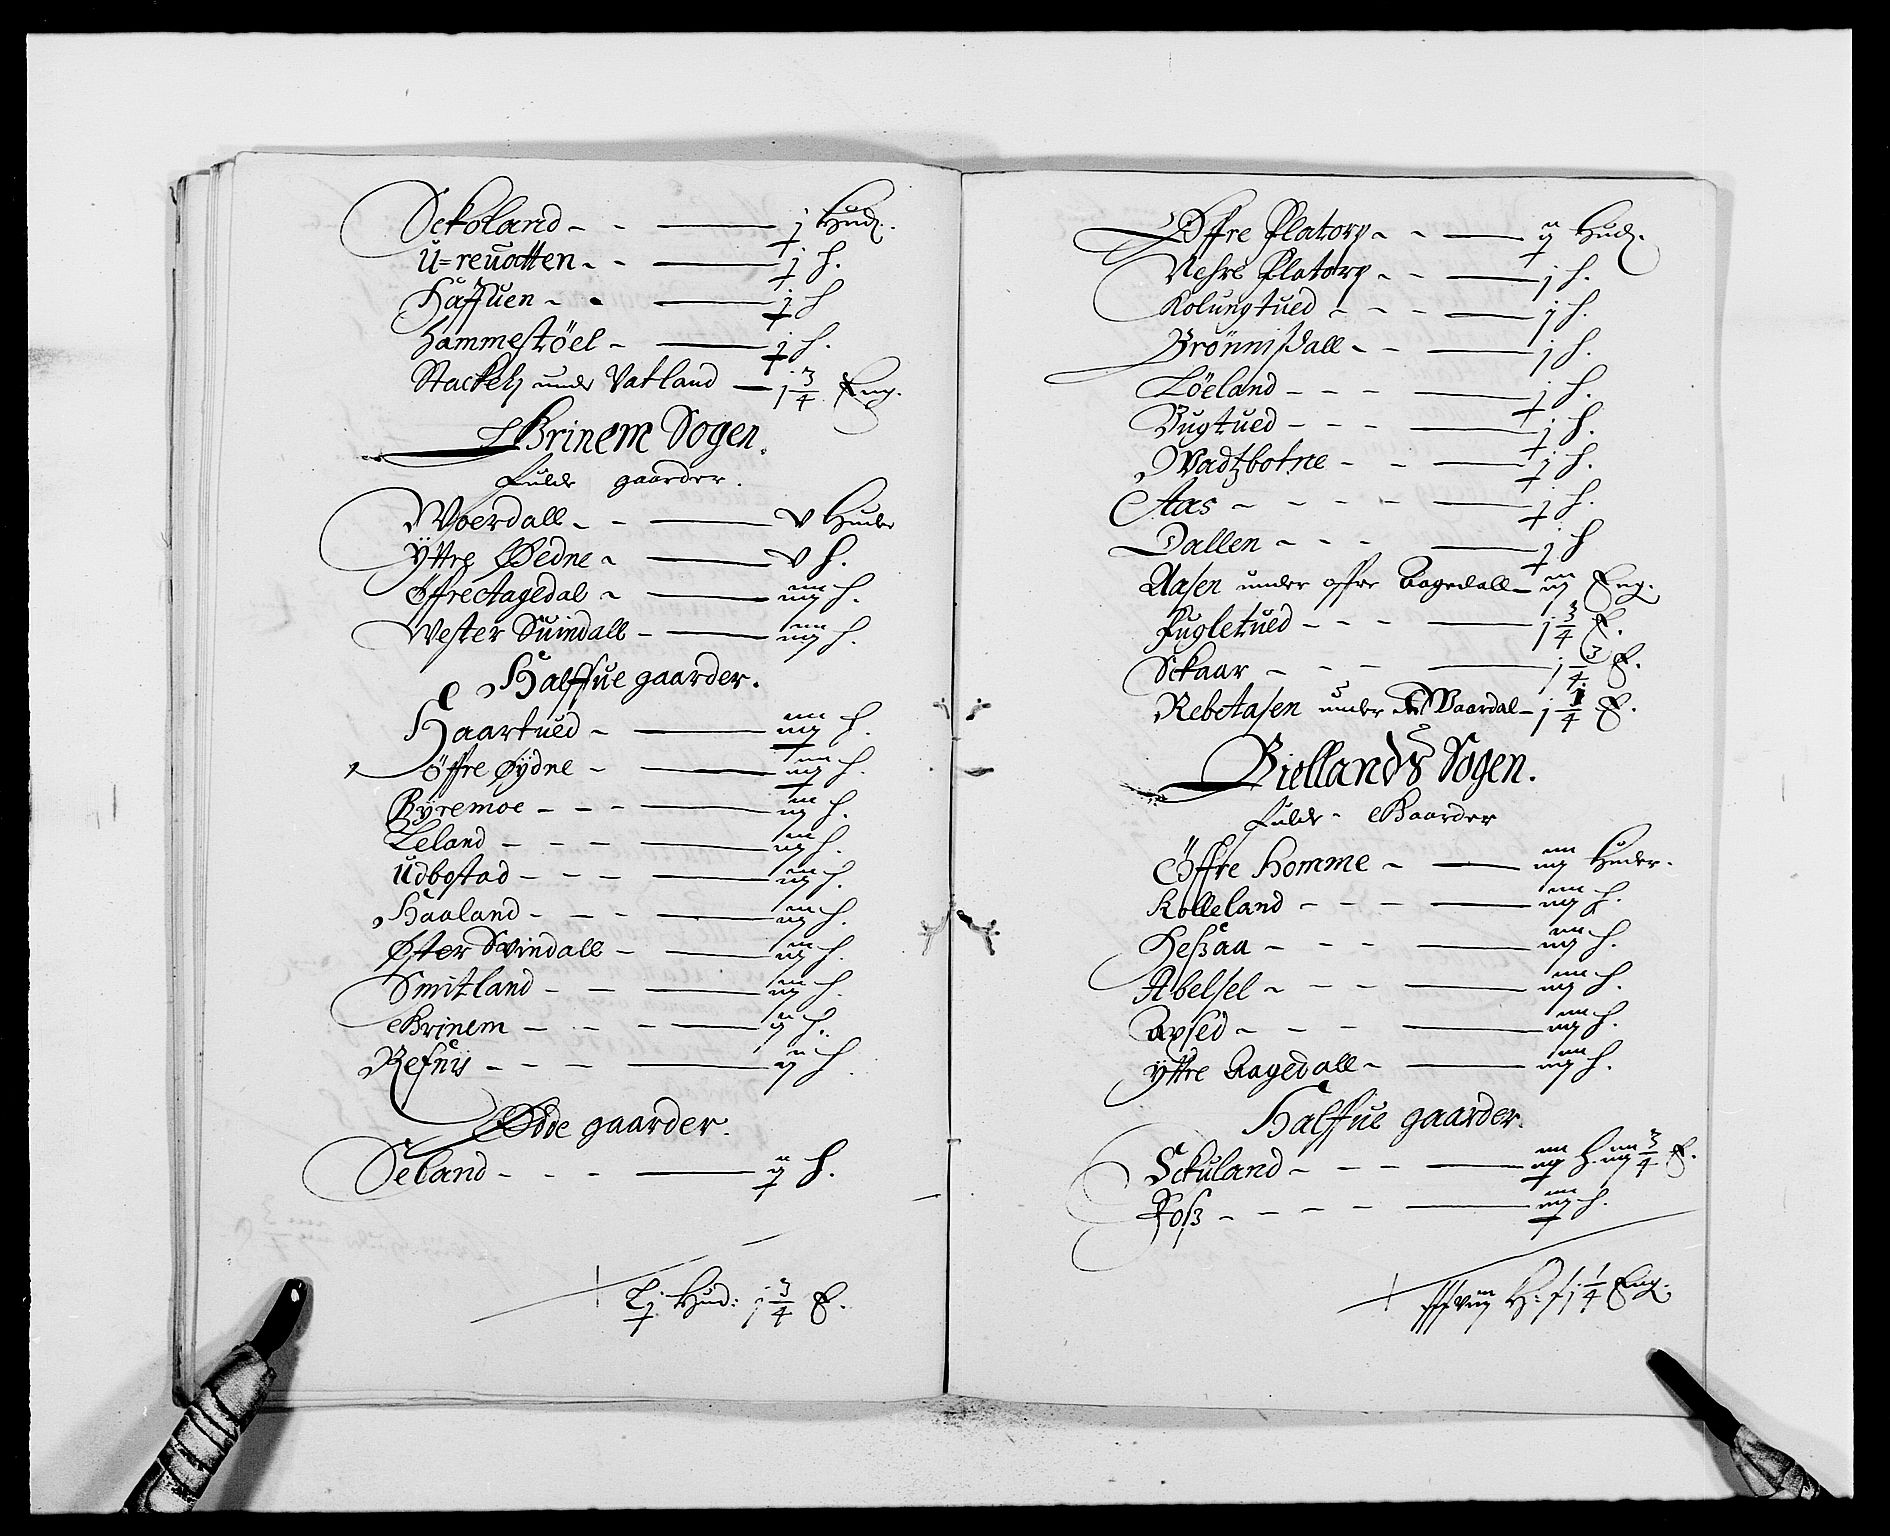 Sckoland - - — j Hud.
U=reuotten - - — j h.
Haffuen - - — j h
Hammestöel - — j h.
Stackels under Vatland — j 3/4 Eng.
Grinem Sogen.
Fulde gaarder.
Woerdall - - — v Huder
Yttre Øedne - — v h.
Öffre Aagedal - — iiij h.
Wester Suindall - — iiij h.
Halffue gaarder.
Haartued - — iiij h.
Öffre Øydne - — iiij h.
Byremoe - - - — iij h.
Leland - - - — iij h.
Udbostad - - - — iij h.
Haaland - - - — iij h.
Øster Svindall - — iij h.
Smitland - - — iij h.
Grinem - - - - — ij h.
Refnis - - - — ij h.
Øde gaarder.
Seland - - - — ij h.
Lj Hud: j 3/4 E.
Öffre Flatorp - - — ij Hud.
Nehre Flatorp - - — j h.
Kolungtued - - - — j h.
Brönnisdall - - — j h.
Löeland - - - — j h.
Bugtued - - - — j h.
Wadtzbotne - - — j h.
Aas - - - - — j h.
Dallen - - - — j h
Aasen under øffre Aagedall - iij Eng.
Fugletued - - - — j 3/4 E.
Sckaar - - - — j 3/4 E.
Rebetasen under Waardal - j 1/4 E.
Biellands Sogen.
Fulde Gaarder
Öffre Homme - — iiij Huder.
Kolleland - - - — iiij h.
Heßaa - - - — iiij h.
Abelsel - - - — iiij h.
Apsed - - - — iiij h.
Yttre Aagedall - — iiij h.
Halffue gaarder.
Sckuland - - - — iiij h. iiij 3/4 E.
Foß - - - - — iiij h.
H: j 1/4 Eng.